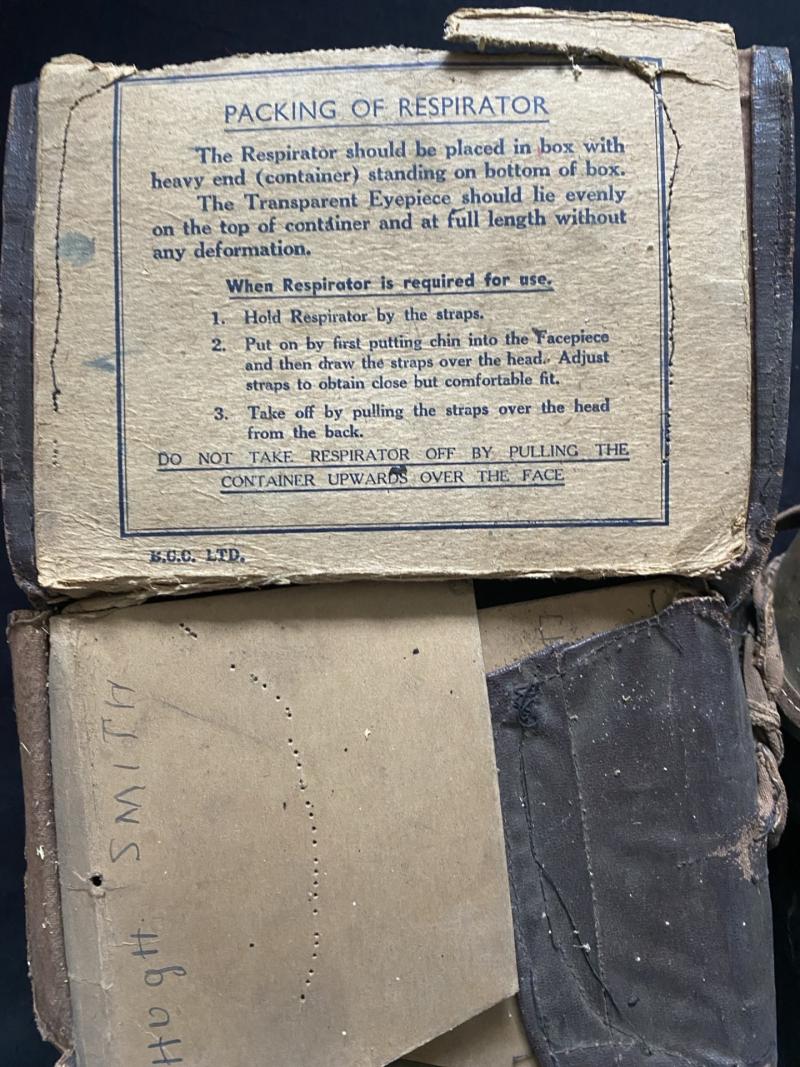 PACKING OF RESPIRATOR
The Respirator should be placed in box with
heavy end (container) standing on bottom of box.
The Transparent Eyepiece should lie evenly
on the top of container and at full length without
any deformation.
When Respirator is required for use.
1. Hold Respirator by the straps.
2. Put on by first putting chin into the Facepiece
and then draw the straps over the head. Adjust
straps to obtain close but comfortable fit.
3. Take off by pulling the straps over the head
from the back.
DO NOT TAKE RESPIRATOR OFF BY PULLING THE
CONTAINER UPWARDS OVER THE FACE
LTD.
HUGH SMITH